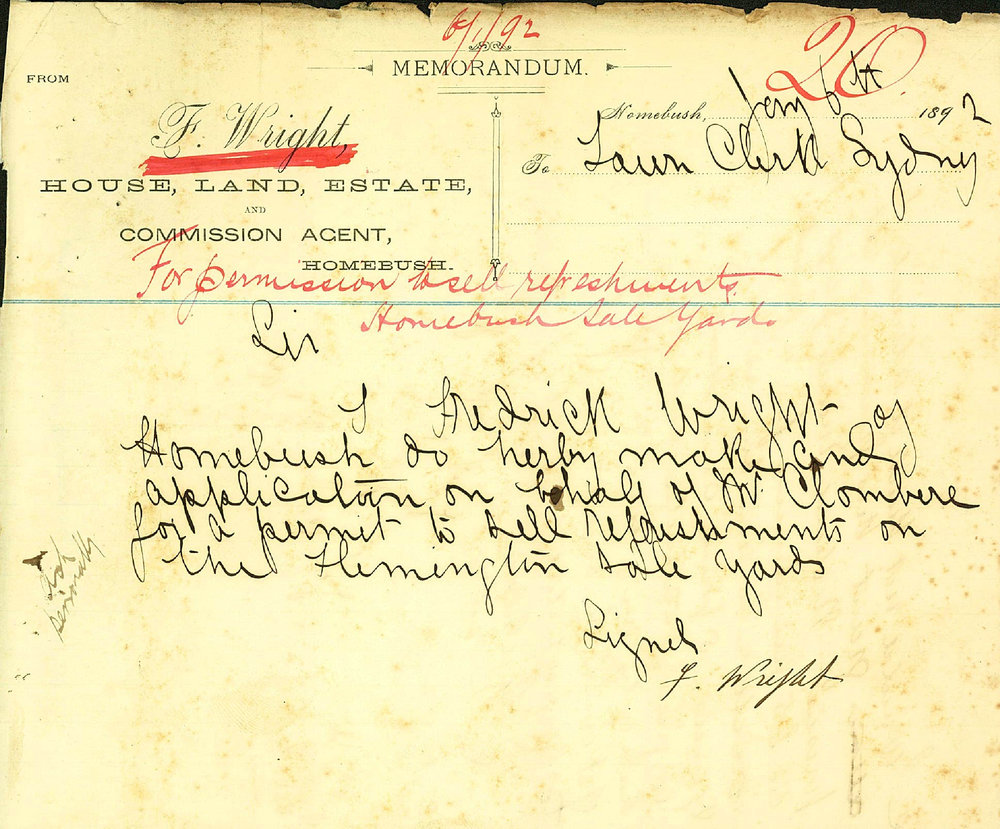 6/1/92
20
MEMORANDUM.
FROM
Homebush, Jany 6th 1892
F. Wright,
To Town Clerk Sydney
HOUSE, LAND, ESTATE,
AND
COMMISSION AGENT,
HOMEBUSH.
For permission to sell refreshments
Homebush Sale Yards
Sir
I Fredrick Wright of
Homebush do herby make and
application on behalf of Mr Clombere
for a permit to sell refreshments on
the Flemington Sale Yards
Signed
F. Wright